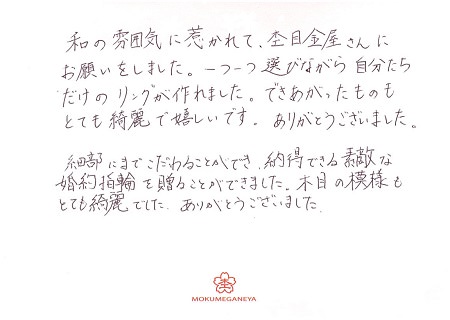 和の雰囲気に惹かれて、杢目金屋さんに
お願いをしました。一つ一つ選びながら自分たち
だけのリングが作れました。できあがったものも
とても綺麗で嬉しいです。ありがとうございました。
細部にまでこだわることができ、納得できる素敵な
婚約指輪を贈ることができました。木目の模様も
とても綺麗でした。ありがとうございました。
杢
MOKUMEGANEYA